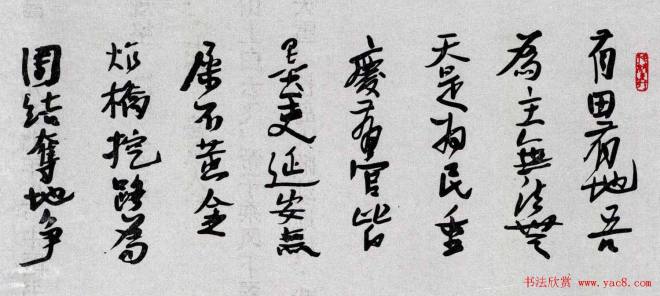 有田有地吾
為主無法無
天是为民重
慶有官皆
墨吏延安無
屎不黄金
炸橋挖路為
团结奪地争
书法欣赏 www.yac8.com